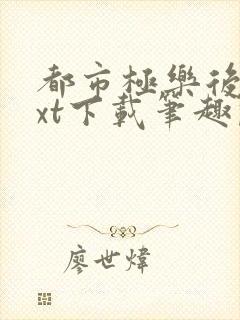 都市極樂後
xt下載筆趣
廖世煒